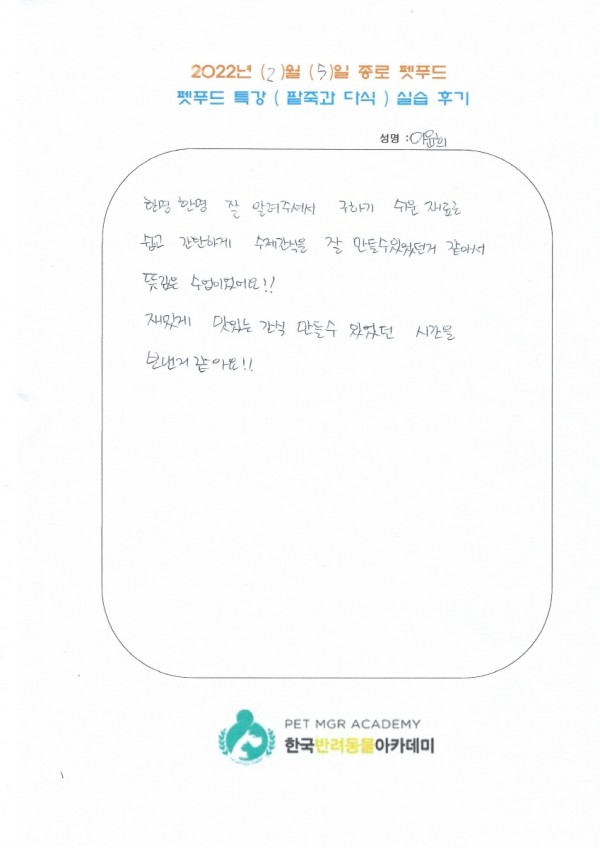 2022년 (2)월 (5)일 종로 펫푸드
펫푸드 특강 ( 팥죽과 다식 ) 실습 후기
성명 : 이윤희
한명 한명 잘 알려주셔서 구하기 쉬운 재료로
쉽고 간단하게 수제간식을 잘 만들수있었던거 같아서
뜻깊은 수업이었어요!!
재밌게 맛있는 간식 만들수 있었던 시간을
보낸거 같아요!!
PET MGR ACADEMY
한국반려동물아카데미